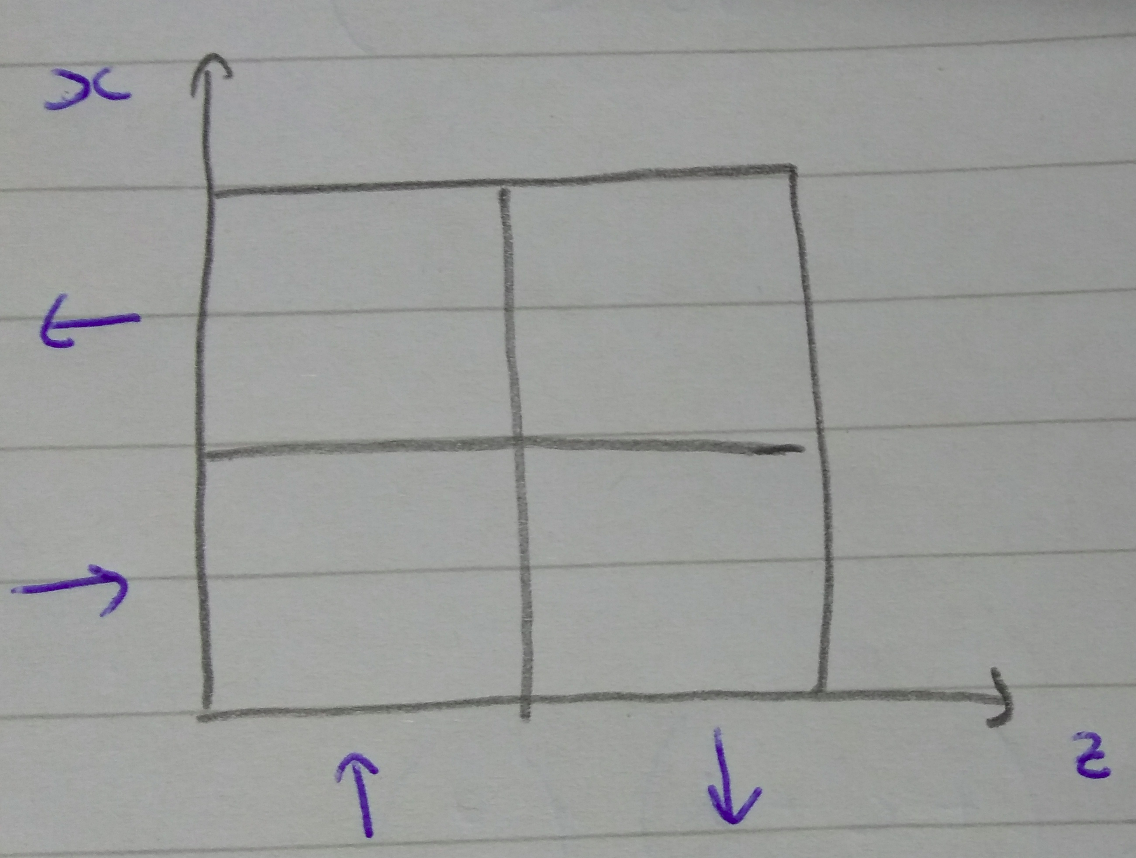 x
←
→
↑ ↓
z